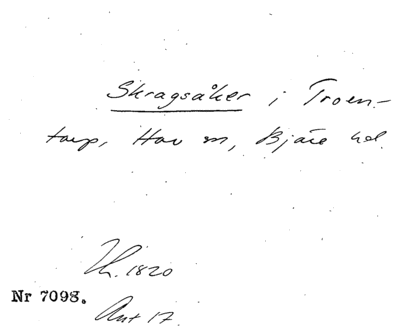 Skragsåker i Troen-
tarp, Hov sn, Bjäre hd.
Lh. 1820
Nr 7098.
Ant 17.